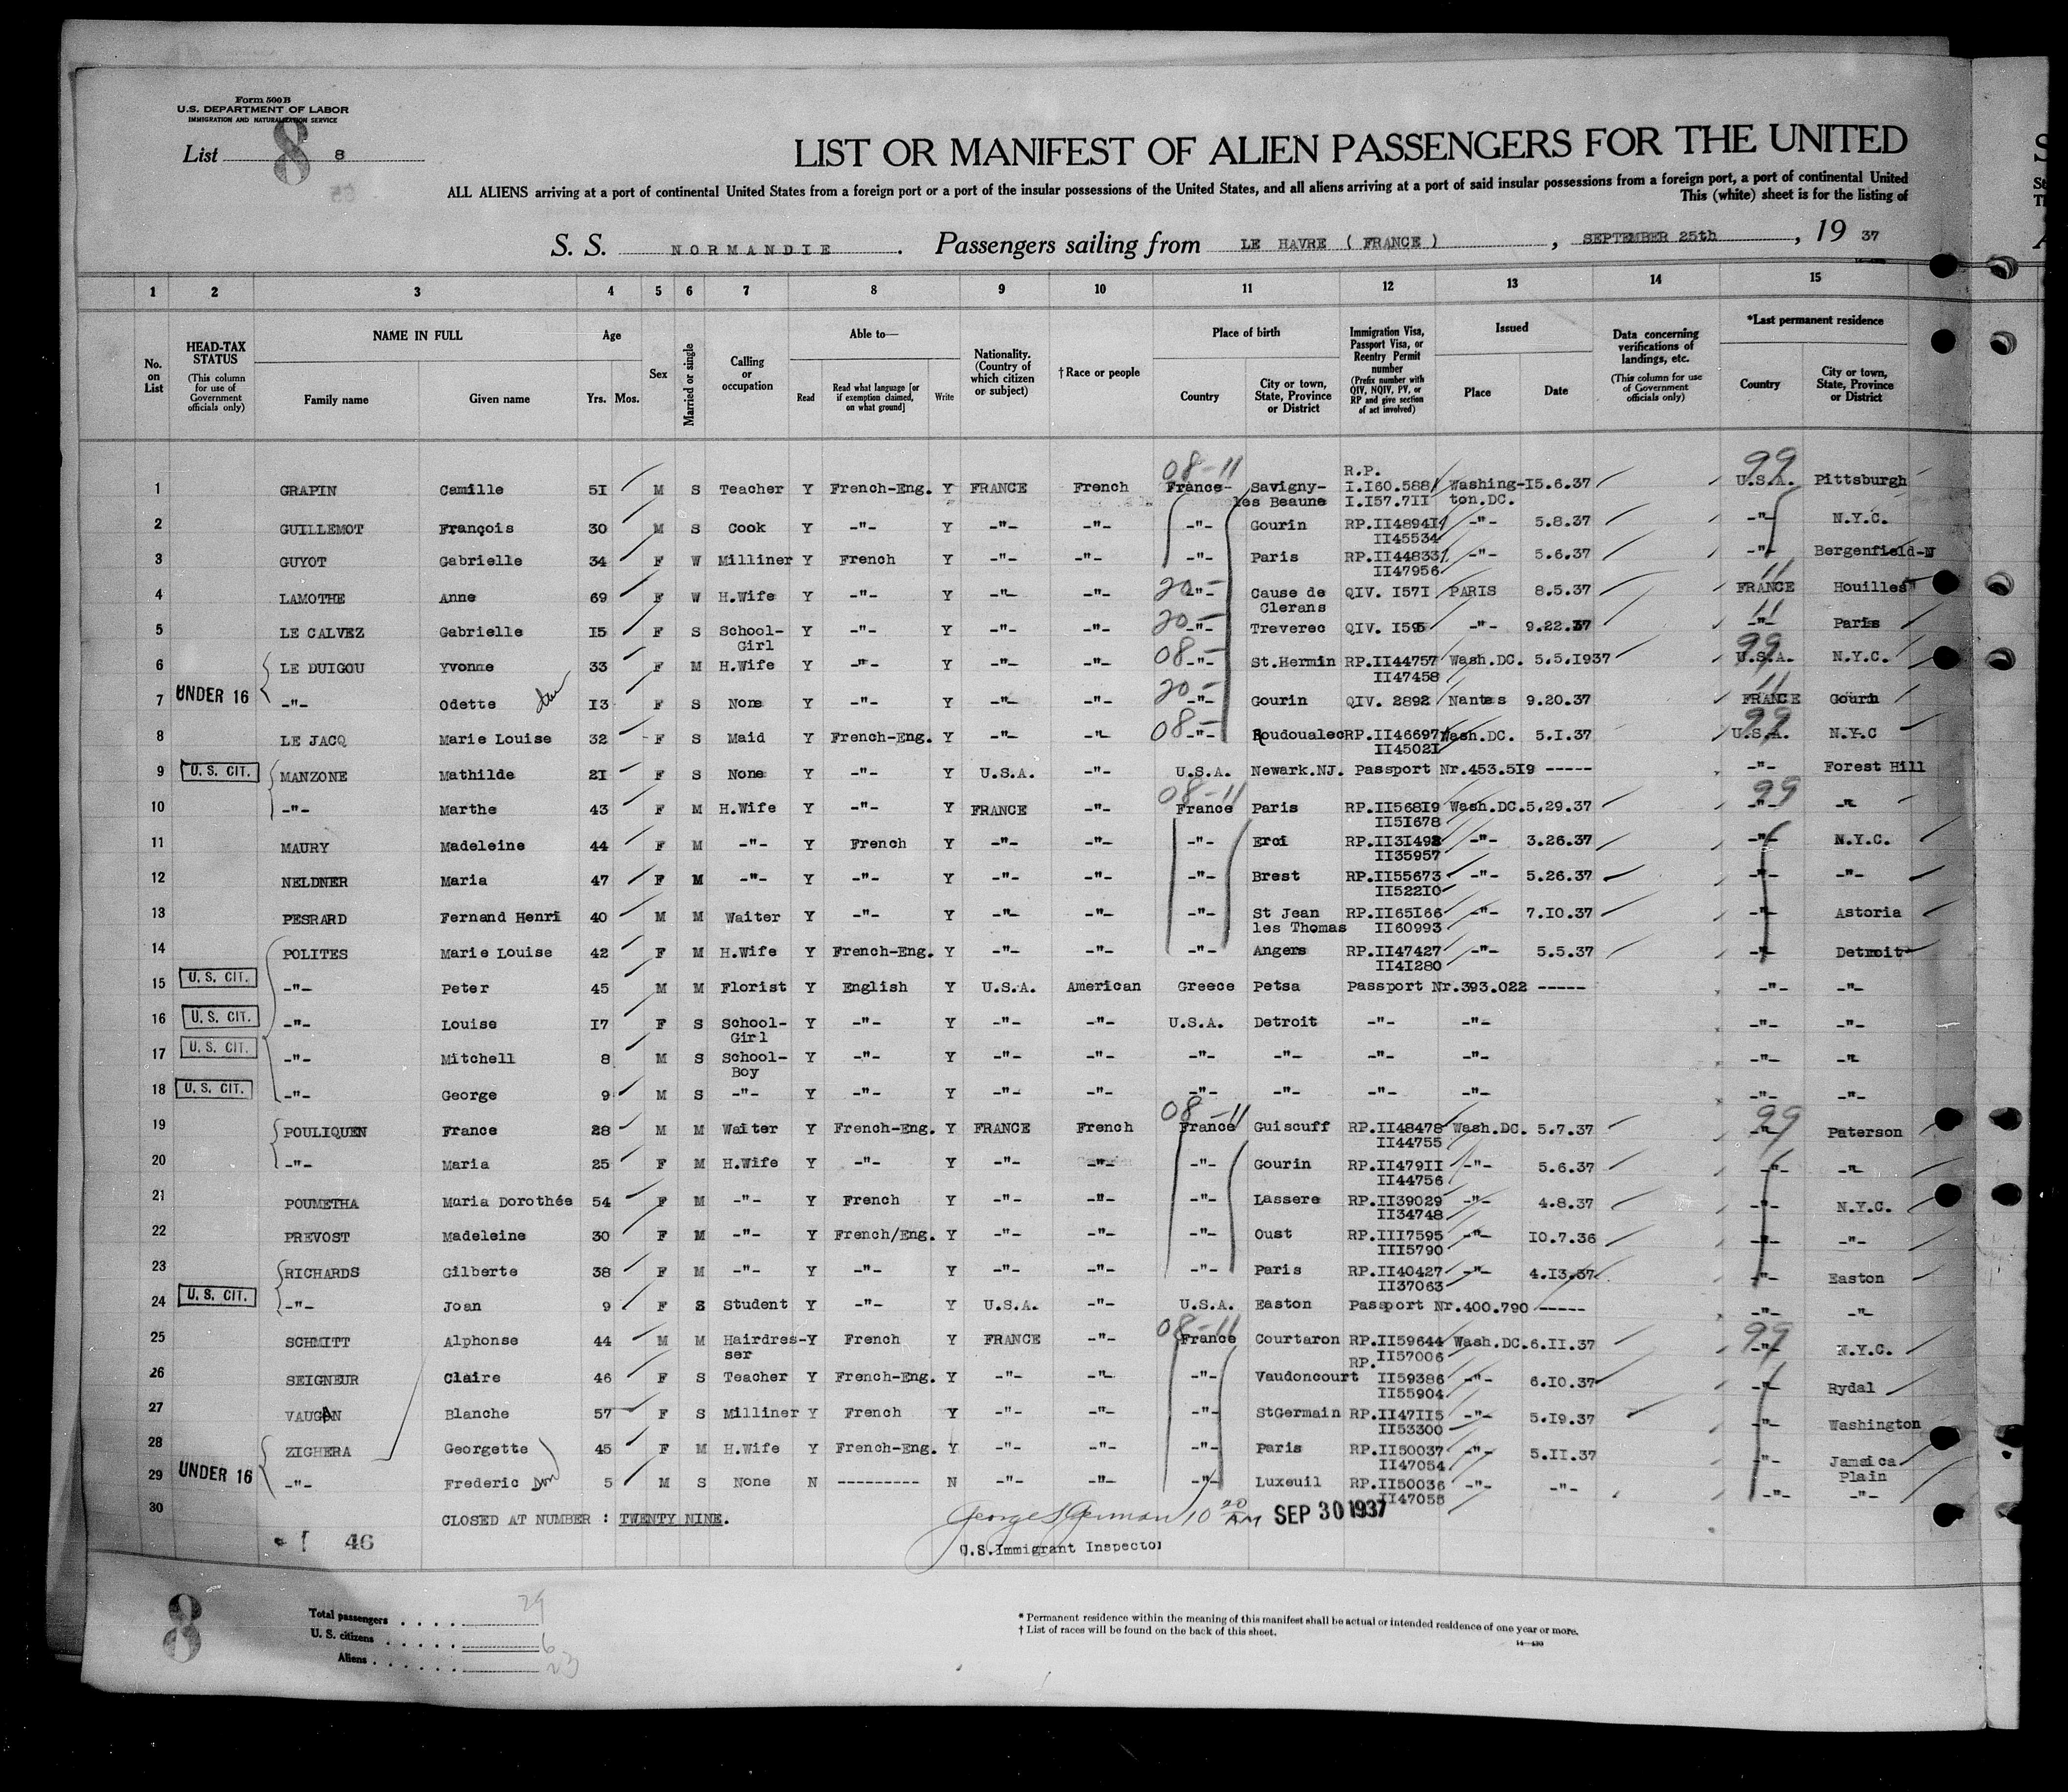 Form 500 B
U.S. DEPARTMENT OF LABOR
IMMIGRATION AND NATURALIZATION SERVICE
List 8
8
LIST OR MANIFEST OF ALIEN PASSENGERS FOR THE UNITED
ALL ALIENS arriving at a port of continental United States from a foreign port or a port of the insular possessions of the United States, and all aliens arriving at a port of said insular possessions from a foreign port, a port of continental United
This (white) sheet is for the listing of
S. S. NORMANDIE. Passengers sailing from LE HAVRE ( FRANCE ), SEPTEMBER 25th, 19 37
1 2 3 4 5 6 7 8 9 10 11 12 13 14 15
No. on List
HEAD-TAX STATUS (This column for use of Government officials only)
NAME IN FULL Family name Given name
Age Yrs. Mos.
Sex
Married or single
Calling or occupation
Able to— Read Read what language [or if exemption claimed, on what ground] Write
Nationality. (Country of which citizen or subject)
† Race or people
Place of birth Country City or town, State, Province or District
Immigration Visa, Passport Visa, or Reentry Permit number (Prefix number with QIV, NQIV, PV, or RP and give section of act involved)
Issued Place Date
Data concerning verifications of landings, etc. (This column for use of Government officials only)
*Last permanent residence Country City or town, State, Province or District
08-11 R.P. 99
1 GRAPIN Camille 5I M S Teacher Y French-Eng. Y FRANCE French France Savigny- I.I60.588/ Washing- I5.6.37 U.S.A. Pittsburgh
les Beaune I.I57.7II ton.DC.
2 GUILLEMOT François 30 M S Cook Y -"- Y -"- -"- -"- Gourin RP.II4894I/ -"- 5.8.37 -"- N.Y.C.
II45534
3 GUYOT Gabrielle 34 F W Milliner Y French Y -"- -"- -"- Paris RP.II44833/ -"- 5.6.37 -"- Bergenfield-NJ
II47956
4 LAMOTHE Anne 69 F W H.Wife Y -"- Y -"- -"- 20- -"- Cause de QIV. I57I PARIS 8.5.37 11 FRANCE Houilles
Clerans
5 LE CALVEZ Gabrielle I5 F S School- Y -"- Y -"- -"- 20- -"- Treverec QIV. I595 -"- 9.22.37 11 -"- Paris
Girl
6 LE DUIGOU Yvonne 33 F M H.Wife Y -"- Y -"- -"- 08- -"- St.Hermin RP.II44757 Wash.DC. 5.5.I937 99 U.S.A. N.Y.C.
II47458
7 UNDER 16 -"- Odette I3 F S None Y -"- Y -"- -"- 20- -"- Gourin QIV. 2892 Nantes 9.20.37 11 FRANCE Gourin
8 LE JACQ Marie Louise 32 F S Maid Y French-Eng. Y -"- -"- 08- -"- Roudoualec RP.II46697/ Wash.DC. 5.I.37 99 U.S.A. N.Y.C
II4502I
9 U. S. CIT. MANZONE Mathilde 2I F S None Y -"- Y U.S.A. -"- U.S.A. Newark.NJ. Passport Nr.453.5I9 ----- -"- Forest Hill
10 -"- Marthe 43 F M H.Wife Y -"- Y FRANCE -"- 08-11 France Paris RP.II568I9 Wash.DC. 5.29.37 99 -"- -"-
II5I678
11 MAURY Madeleine 44 F M -"- Y French Y -"- -"- -"- Erci RP.II3I492 -"- 3.26.37 -"- N.Y.C.
II35957
12 NELDNER Maria 47 F M -"- Y -"- Y -"- -"- -"- Brest RP.II55673 -"- 5.26.37 -"- -"-
II522I0
13 PESRARD Fernand Henri 40 M M Waiter Y -"- Y -"- -"- -"- St Jean RP.II65I66 -"- 7.I0.37 -"- Astoria
les Thomas II60993
14 POLITES Marie Louise 42 F M H.Wife Y French-Eng. Y -"- -"- -"- Angers RP.II47427 -"- 5.5.37 -"- Detroit
II4I280
15 U. S. CIT. -"- Peter 45 M M Florist Y English Y U.S.A. American Greece Petsa Passport Nr.393.022 ----- -"- -"-
16 U. S. CIT. -"- Louise I7 F S School- Y -"- Y -"- -"- U.S.A. Detroit -"- -"- -"- -"-
Girl
17 U. S. CIT. -"- Mitchell 8 M S School- Y -"- Y -"- -"- -"- -"- -"- -"- -"- -"-
Boy
18 U. S. CIT. -"- George 9 M S -"- Y -"- Y -"- -"- -"- -"- -"- -"- -"- -"-
19 POULIQUEN France 28 M M Waiter Y French-Eng. Y FRANCE French 08-11 France Guiscuff RP.II48478 Wash.DC. 5.7.37 99 -"- Paterson
II44755
20 -"- Maria 25 F M H.Wife Y -"- Y -"- -"- -"- Gourin RP.II479II -"- 5.6.37 -"- -"-
II44756
21 POUMETHA Maria Dorothée 54 F M -"- Y French Y -"- -"- -"- Lassere RP.II39029 -"- 4.8.37 -"- N.Y.C.
II34748
22 PREVOST Madeleine 30 F M -"- Y French/Eng. Y -"- -"- -"- Oust RP.III7595 -"- I0.7.36 -"- -"-
III5790
23 RICHARDS Gilberte 38 F M -"- Y -"- Y -"- -"- -"- Paris RP.II40427 -"- 4.I3.37 -"- Easton
II37063
24 U. S. CIT. -"- Joan 9 F S Student Y -"- Y U.S.A. -"- U.S.A. Easton Passport Nr.400.790 ----- -"- -"-
25 SCHMITT Alphonse 44 M M Hairdres- Y French Y FRANCE -"- 08-11 France Courtaron RP.II59644 Wash.DC. 6.II.37 99 -"- N.Y.C.
ser II57006
26 SEIGNEUR Claire 46 F S Teacher Y French-Eng. Y -"- -"- -"- Vaudoncourt RP. II59386 -"- 6.I0.37 -"- Rydal
II55904
27 VAUGAN Blanche 57 F S Milliner Y French Y -"- -"- -"- StGermain RP.II47II5 -"- 5.I9.37 -"- Washington
II53300
28 ZIGHERA Georgette 45 F M H.Wife Y French-Eng. Y -"- -"- -"- Paris RP.II50037 -"- 5.II.37 -"- Jamaica
II47054 Plain
29 UNDER 16 -"- Frederic 5 M S None N --------- N -"- -"- -"- Luxeuil RP.II50036 -"- -"- -"- -"-
II47055
30 CLOSED AT NUMBER : TWENTY NINE. 10 20 AM SEP 30 1937
46
U.S.Immigrant Inspector
8
Total passengers . . . . 29
U. S. citizens . . . . . 6
Aliens . . . . . . 23
* Permanent residence within the meaning of this manifest shall be actual or intended residence of one year or more.
† List of races will be found on the back of this sheet.